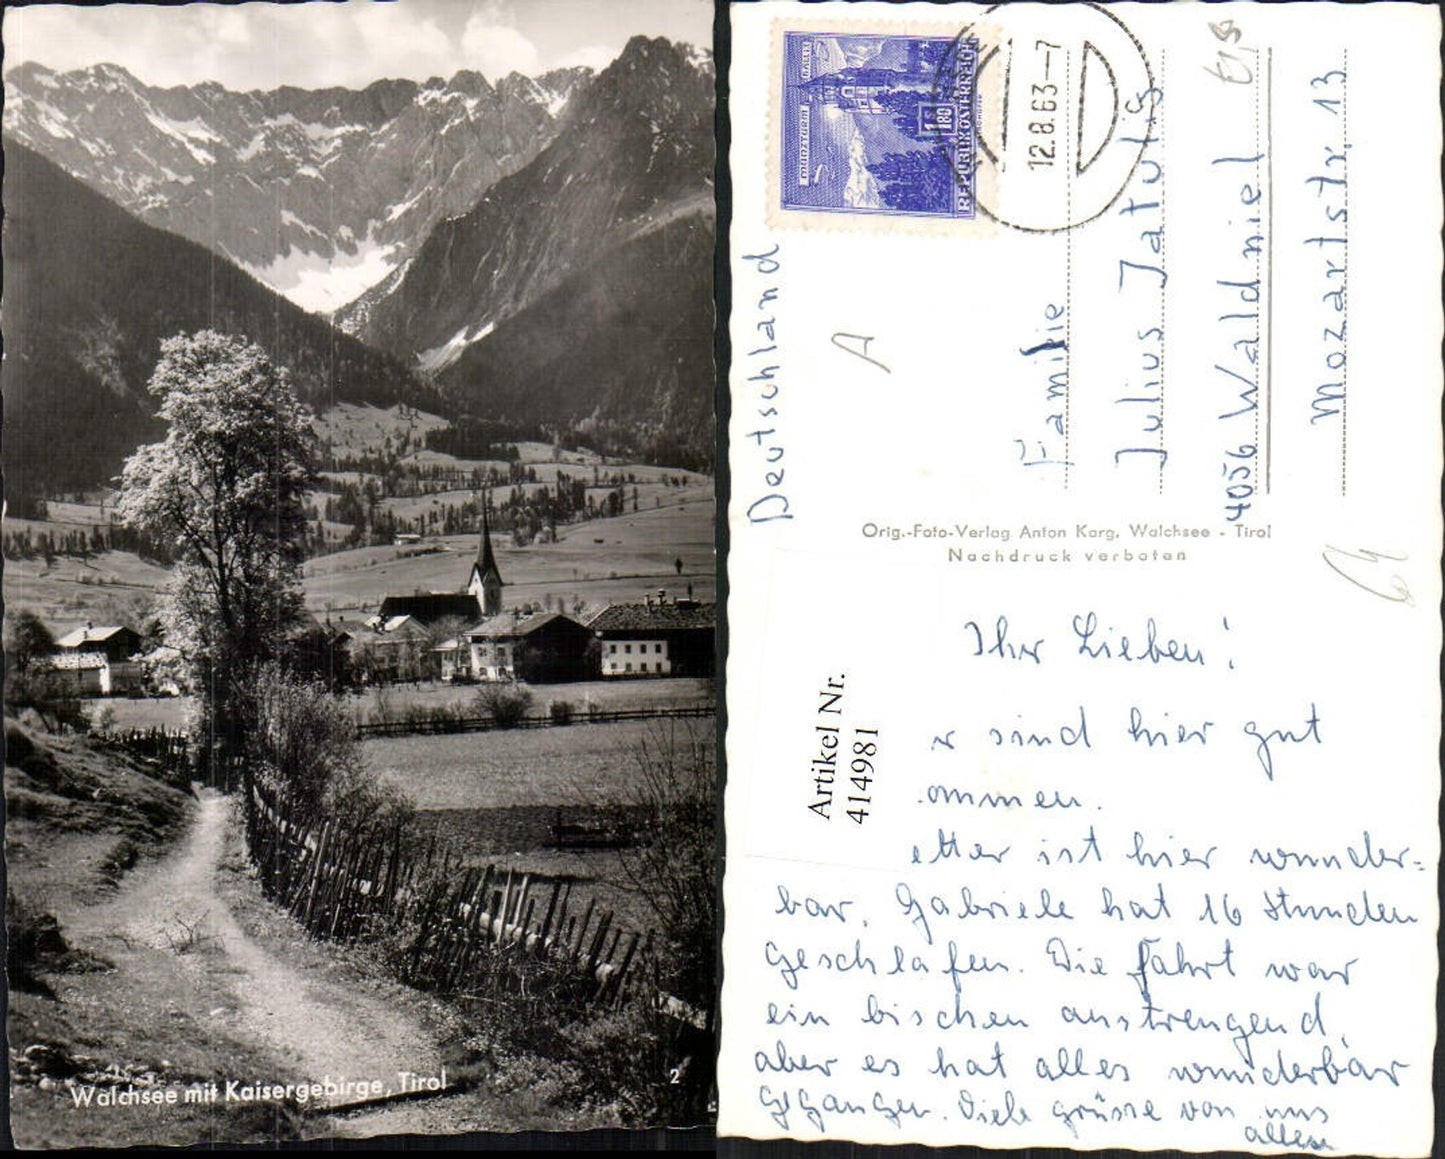 Walchsee mit Kaisergebirge, Tirol
2
1.80
REPUBLIK ÖSTERREICH
12.8.63-7
Deutschland
A
Familie
Julius Jatulis
4056 Waldniel
Mozartstr. 13
Orig.-Foto-Verlag Anton Karg, Walchsee - Tirol
Nachdruck verboten
Artikel Nr.
414981
Ihr Lieben!
r sind hier gut
ommen.
etter ist hier wunder=
bar. Gabriele hat 16 Stunden
geschlafen. Die Fahrt war
ein bischen anstrengend,
aber es hat alles wunderbar
gegangen. Viele grüsse von uns
allen